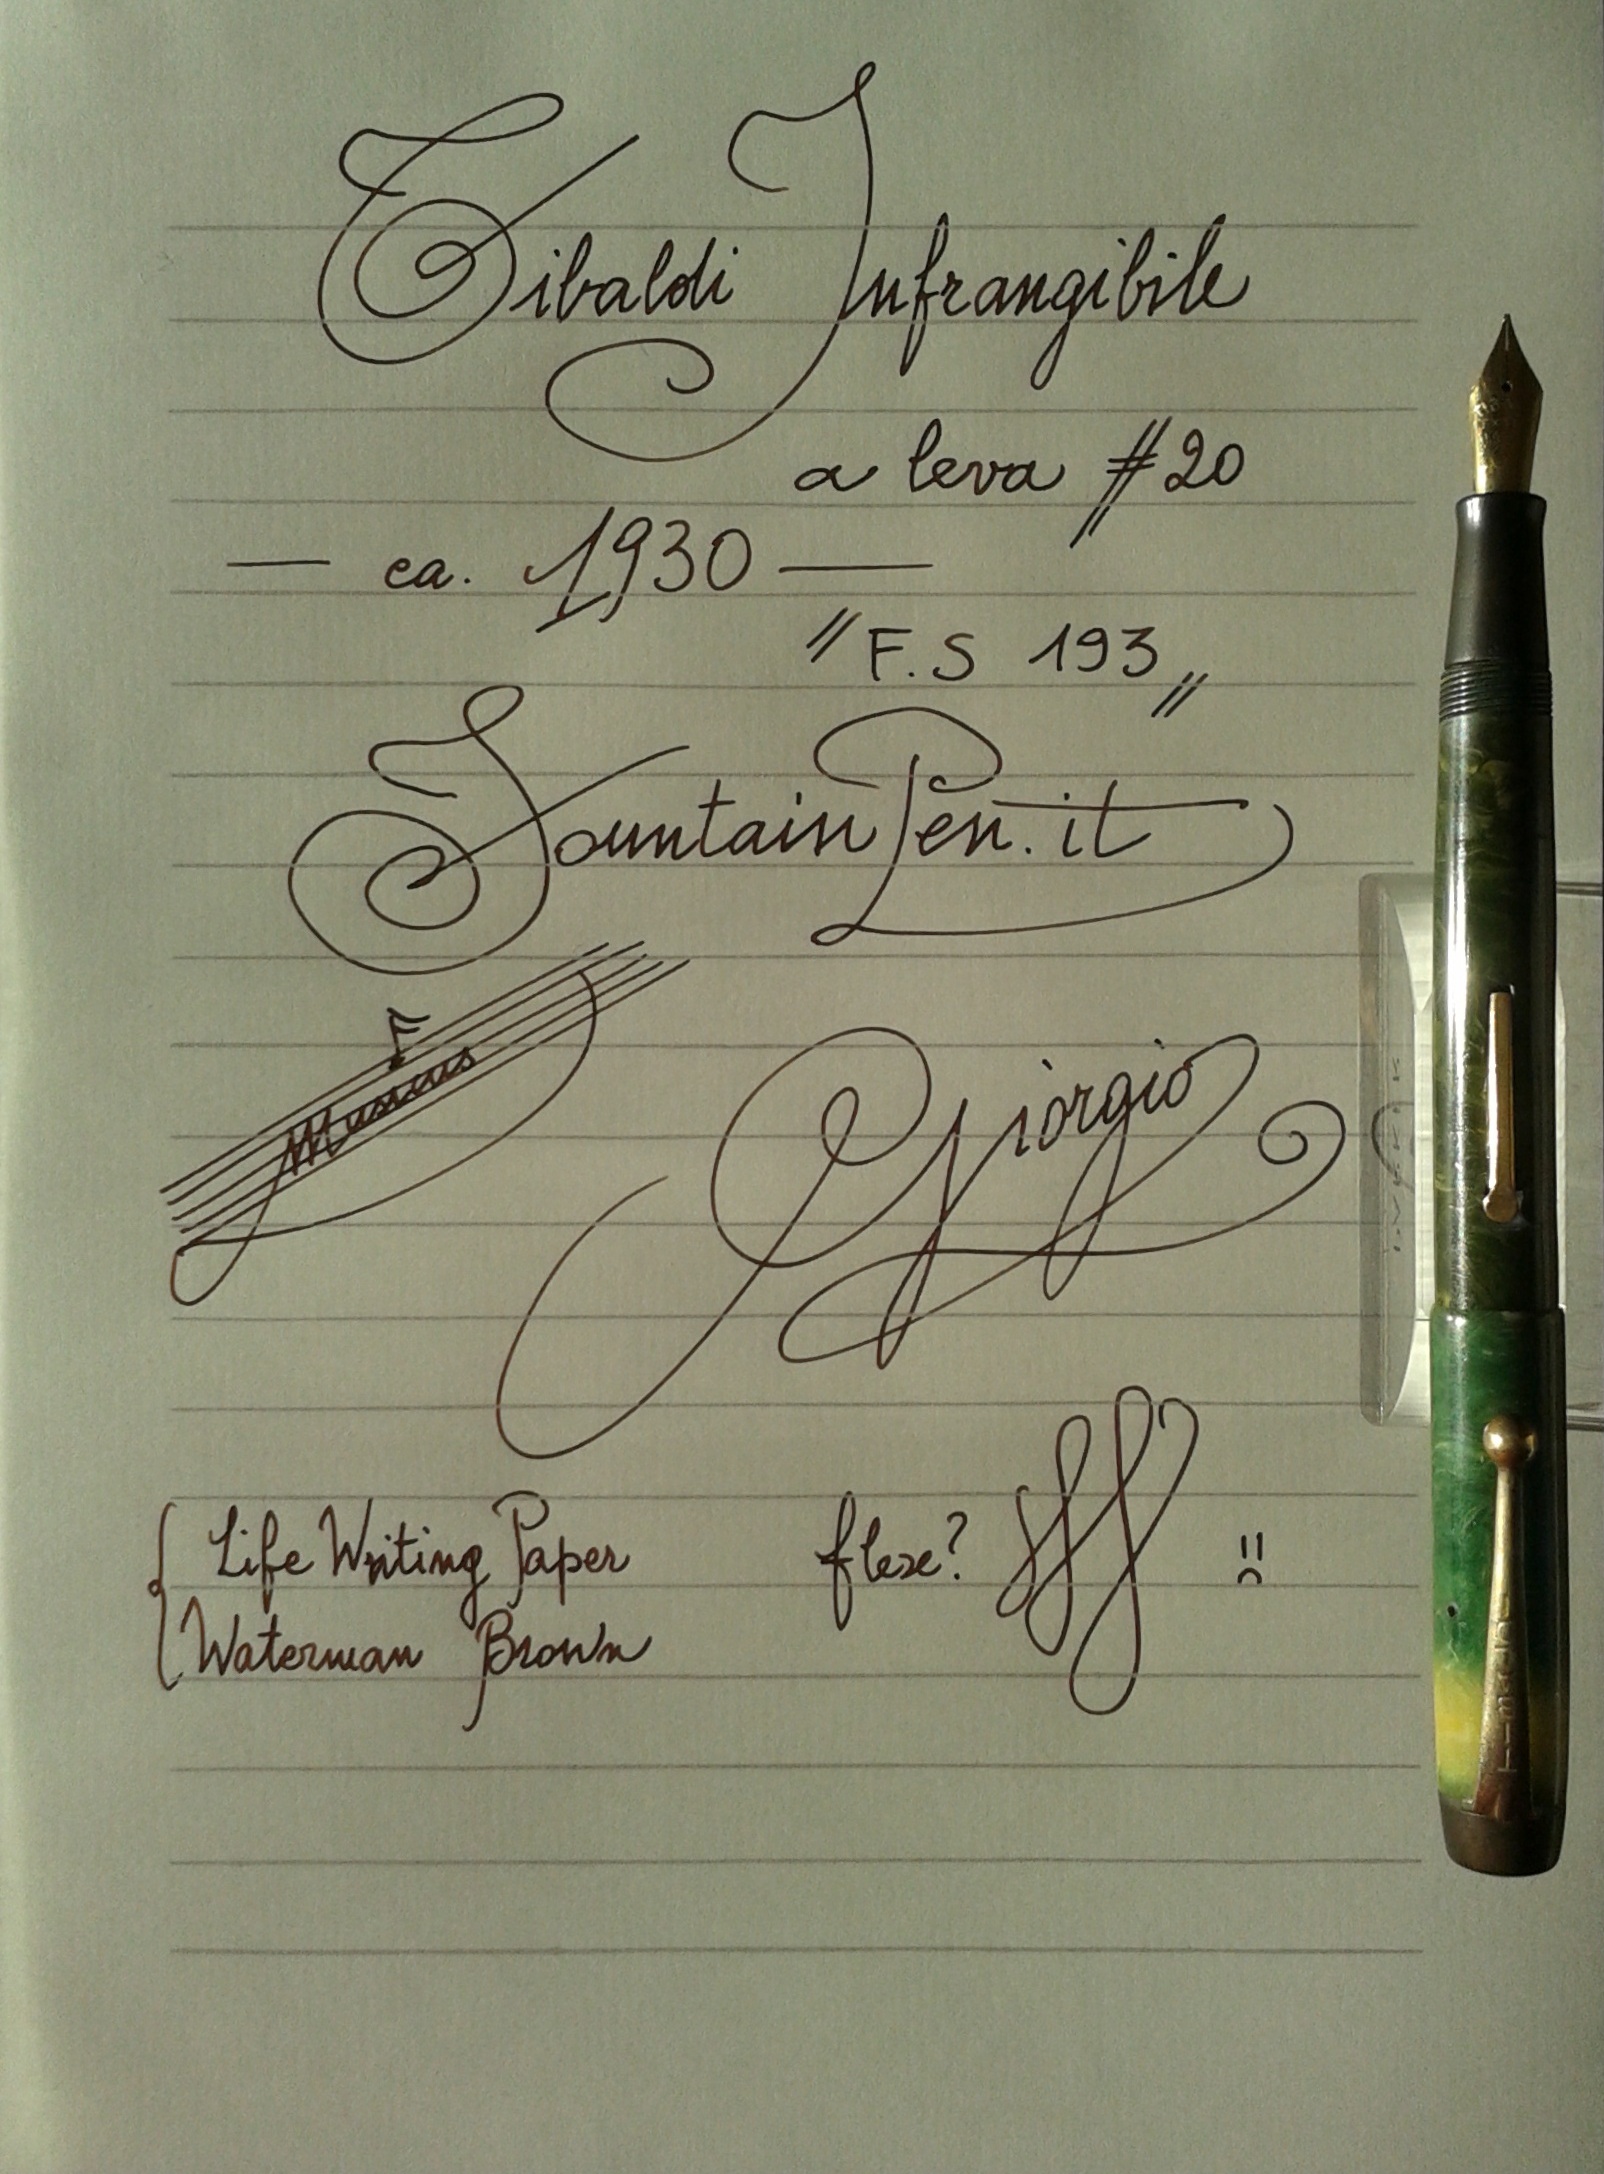 Tibaldi Infrangibile
a leva #20
— ca. 1930 —
"F.S 193"
FountainPen.it
Musicus
Giorgio
Life Writing Paper
Waterman Brown
flex?